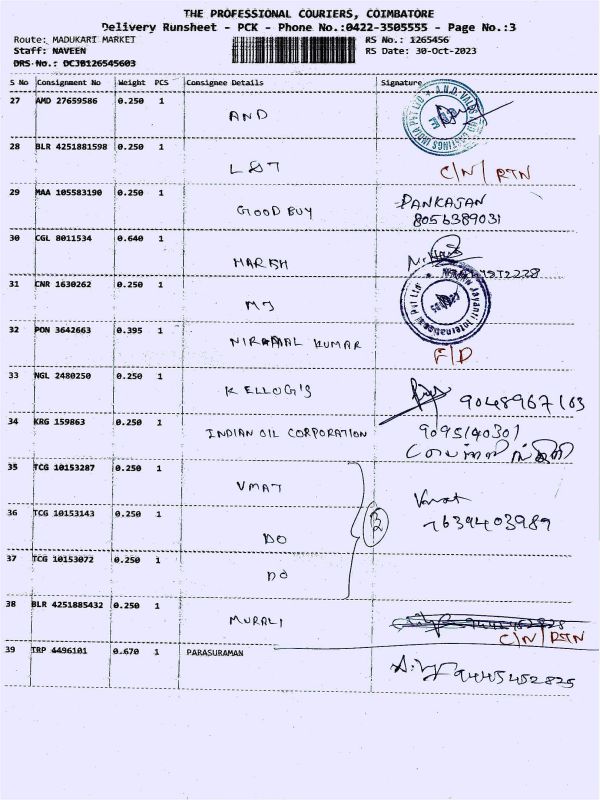 THE PROFESSIONAL COURIERS, COIMBATORE
Delivery Runsheet - PCK - Phone No.:0422-3505555 - Page No.:3
Route: MADUKARI MARKET RS No.: 1265456
Staff: NAVEEN RS Date: 30-Oct-2023
DRS No.: DCJB126545603
S No Consignment No Weight PCS Consignee Details Signature
27 AMD 27659586 0.250 1 AND
28 BLR 4251881598 0.250 1 L&T C/N/RTN
29 MAA 105583190 0.250 1 GOOD BUY PANKAJAN
8056389031
30 CGL 8011534 0.640 1 HARISH
31 CNR 1630262 0.250 1 MJ
32 PON 3642663 0.395 1 NIRAMAL KUMAR F/D
33 NGL 2480250 0.250 1 KELLOG'S 9048967163
34 KRG 159863 0.250 1 INDIAN OIL CORPORATION 9095140301
35 TCG 10153287 0.250 1 VMAT Vmat
36 TCG 10153143 0.250 1 DO 7639403989
37 TCG 10153072 0.250 1 DO
38 BLR 4251885432 0.250 1 MURALI
C/N/RTN
39 TRP 4496101 0.670 1 PARASURAMAN 9445452825